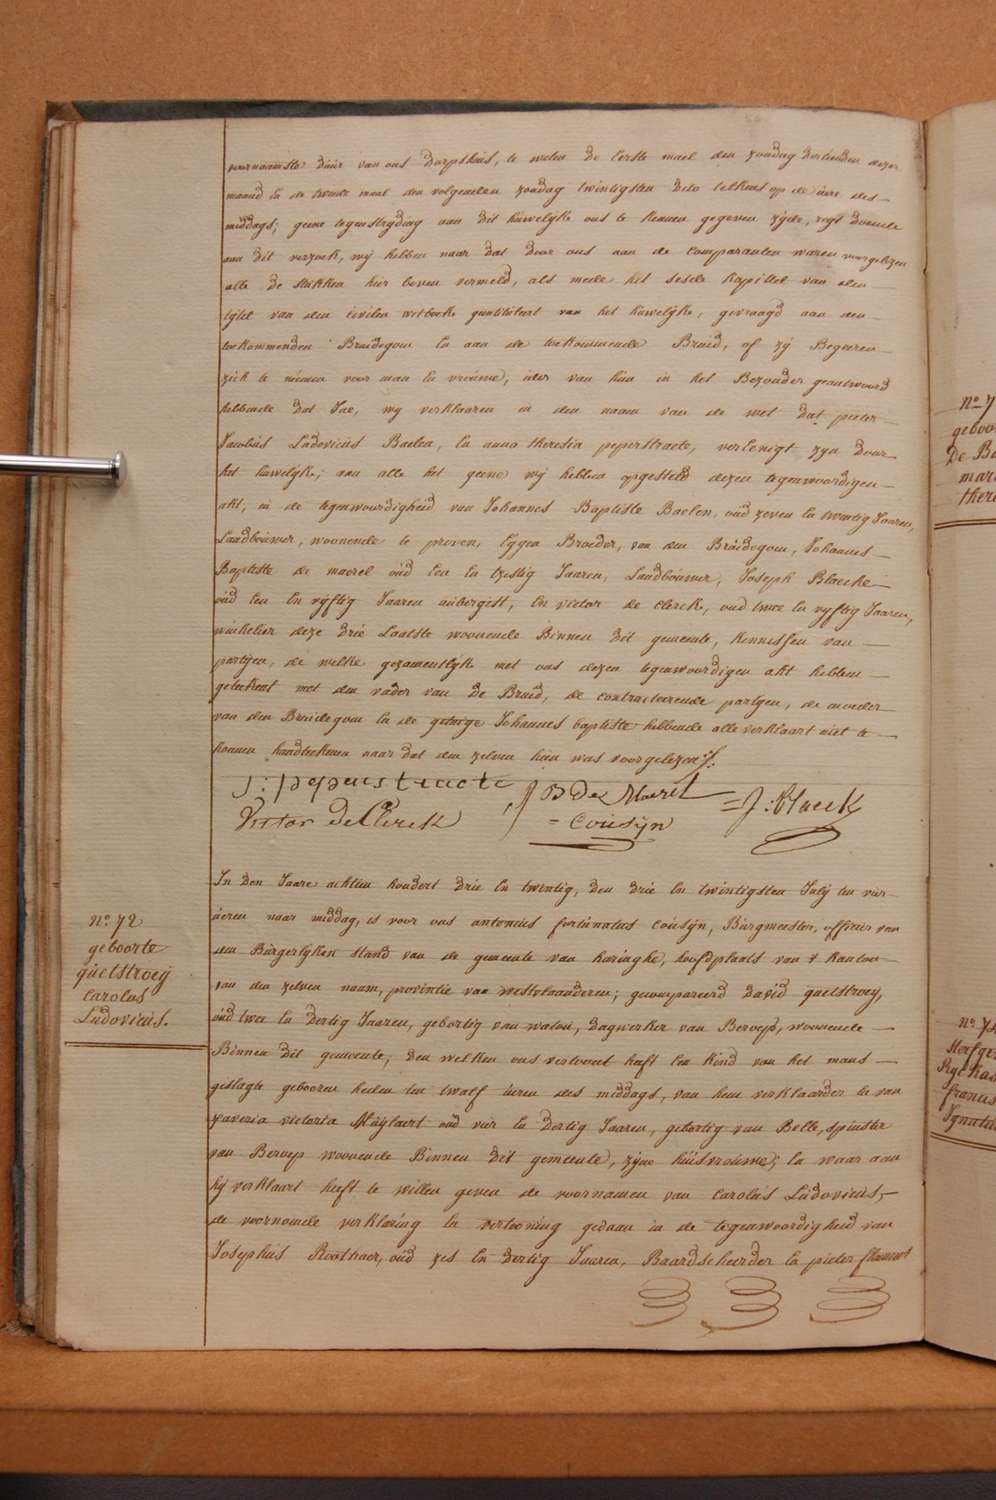 voornaamste duùr van ons dorpshuis, te weten de Eerste mael den zondag derthienden dezer
maend En de tweede mael den volgenden zondag twintigsten dito telkens op de uere des
middags; geene tegenstryding aan dit huwelijk ons te kennen gegeven zijnde, regt doende
aan dit verzoek, wij hebben naar dat door ons aan de Comparanten waren voorgelezen
alle de stukken hier boven vermeld, als mede het sesde kapittel van den
tijtel van den Civilen wetboek geintituleert van het huwelijk, gevraegd aan den
toekommenden Bruidegom En aan de toekommende Bruid, of zij Begeeren
zich te nemen voor man En vrouwe, ider van hun in het Bezonder geantwoord
hebbende dat Jae, wy verklaaren in den naam van de wet dat pieter
Jacobús Ludovicús Baelen, En anna theresia peperstraete, vereenigt zyn door
het huwelijk; aan alle het geene wij hebben opgesteld dezen tegenwoordigen
akt, in de tegenwoordigheid van Johannes Baptiste Baelen, oud zeven En twintig Jaaren,
Landboúwer, woonende te proven, Eygen Broeder, van den Brúidegom, Johannes
Baptiste de maerel oúd Een En tzestig Jaaren, Landboúwer, Joseph Blaeke
oúd Een En vyftig Jaaren aúbergist, En victor de clerck, oud twee En vyftig Jaaren,
winkelier deze drie Laatste woonende Binnen dit gemeente, kennissen van
partijen, de welke gezamentlijk met ons dezen tegenwoordigen akt hebben
geteekent met den vader van de Bruid, de contracteerende partyen, de moeder
van den Bruidegom En de getuige Johannes baptiste hebbende alle verklaart niet te
konnen handteekenen naar dat den zelven hun was voorgelezen ./.
J: peperstraete J B De Maerel = J: Blaeck
Victor De Clerck = Coúsÿn
In den Jaare achtien hondert drie En twintig, den drie En twintigsten Julij ten vier
úeren naar middag, is voor ons antonius fortúnatus Coúsijn, Búrgmeester, officier van
den Búrgerlyken stand van de gemeente van haringhe, hoofdplaats van 't kanton
van den zelven naam, provintie van westvlaanderen; gecompareerd david quelstroeij,
oúd twee En dertig Jaaren, gebortig van watou, dagwerker van Beroep, woonende
Binnen dit gemeente, den welken ons vertoont heeft Een kind van het mans
geslagte gebooren heden ten twalf úeren des middags, van hem verklaarder En van
xaveria victoria Múylaert oud vier En dertig Jaaren, gebortig van Belle, spinster
van Beroep woonende Binnen dit gemeente, zijne húisvrouwe; En waar aan
hij verklaart heeft te willen geven de voornamen van Carolús Lúdovicús,
de voornoemde verklaring En vertooning gedaan in de tegenwoordigheid van
Josephús Roothaer, oúd zes En dertig Jaaren, Baardscheerder En pieter
No 72
geboorte
qúelstroeij
Carolus
Lúdovicús.